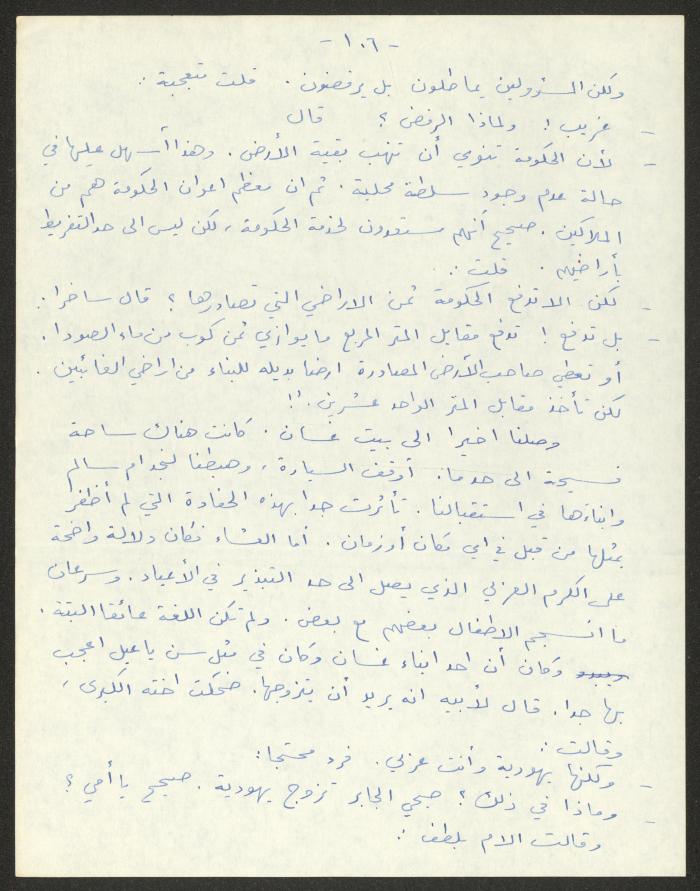 - ١٠٦ -
ولكن المسؤولين يماطلون بل يرفضون . قلت متعجبة :
- غريب ! ولماذا الرفض ؟ قال
- لأن الحكومة تنوي أن تنهب بقية الأرض . وهذا أسهل عليها في
حالة عدم وجود سلطة محلية . ثم ان معظم اعوان الحكومة هم من
الملاكين . صحيح أنهم مستعدون لخدمة الحكومة ، لكن ليس الى حد التفريط
بأراضيهم . قلت :
- لكن الا تدفع الحكومة ثمن الاراضي التي تصادرها ؟ قال ساخرا :
- بل تدفع ! تدفع مقابل المتر المربع ما يوازي ثمن كوب من ماء الصودا .
أو تعطي صاحب الأرض المصادرة ارضا بديله للبناء من اراضي الغائبين .
لكن تأخذ مقابل المتر الواحد عشرين . !!
وصلنا اخيرا الى بيت غسان . كانت هناك ساحة
فسيحة الى حد ما . أوقف السيارة ، وهبطنا لنجد ام سالم
وابناءها في استقبالنا . تأثرت جدا بهذه الحفاوة التي لم أظفر
بمثلها من قبل في اي مكان أو زمان . أما العشاء فكان دلالة واضحة
على الكرم العربي الذي يصل الى حد التبذير في الأعياد . وسرعان
ما انسجم الاطفال بعضهم مع بعض . ولم تكن اللغة عائقا البتة .
وكان أن احد ابناء غسان وكان في مثل سن ياعيل اعجب
بها جدا . قال لأبيه انه يريد أن يتزوجها . ضحكت اخته الكبرى ،
وقالت :
- ولكنها يهودية وأنت عربي . فرد محتجا :
- وماذا في ذلك ؟ صبحي الجابر تزوج يهودية . صحيح يا أمي ؟
وقالت الام بلطف :